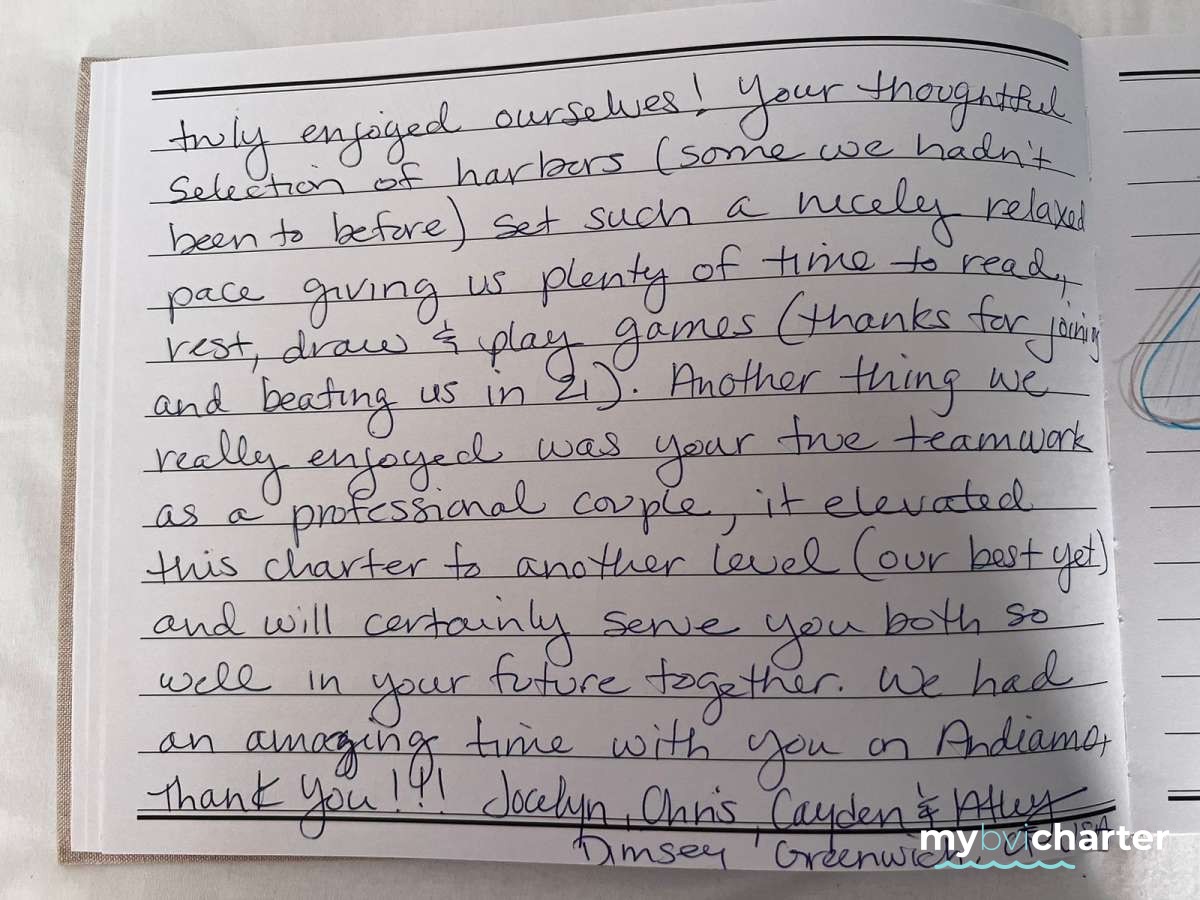 truly enjoyed ourselves! Your thoughtful
selection of harbors (some we hadn't
been to before) set such a nicely relaxed
pace giving us plenty of time to read,
rest, draw & play games (thanks for joining
and beating us in 21). Another thing we
really enjoyed was your true teamwork
as a professional couple, it elevated
this charter to another level (our best yet)
and will certainly serve you both so
well in your future together. We had
an amazing time with you on Andiamo,
thank you!!! Jocelyn, Chris, Cayden &
Dimsey Greenwich,
mybvicharter